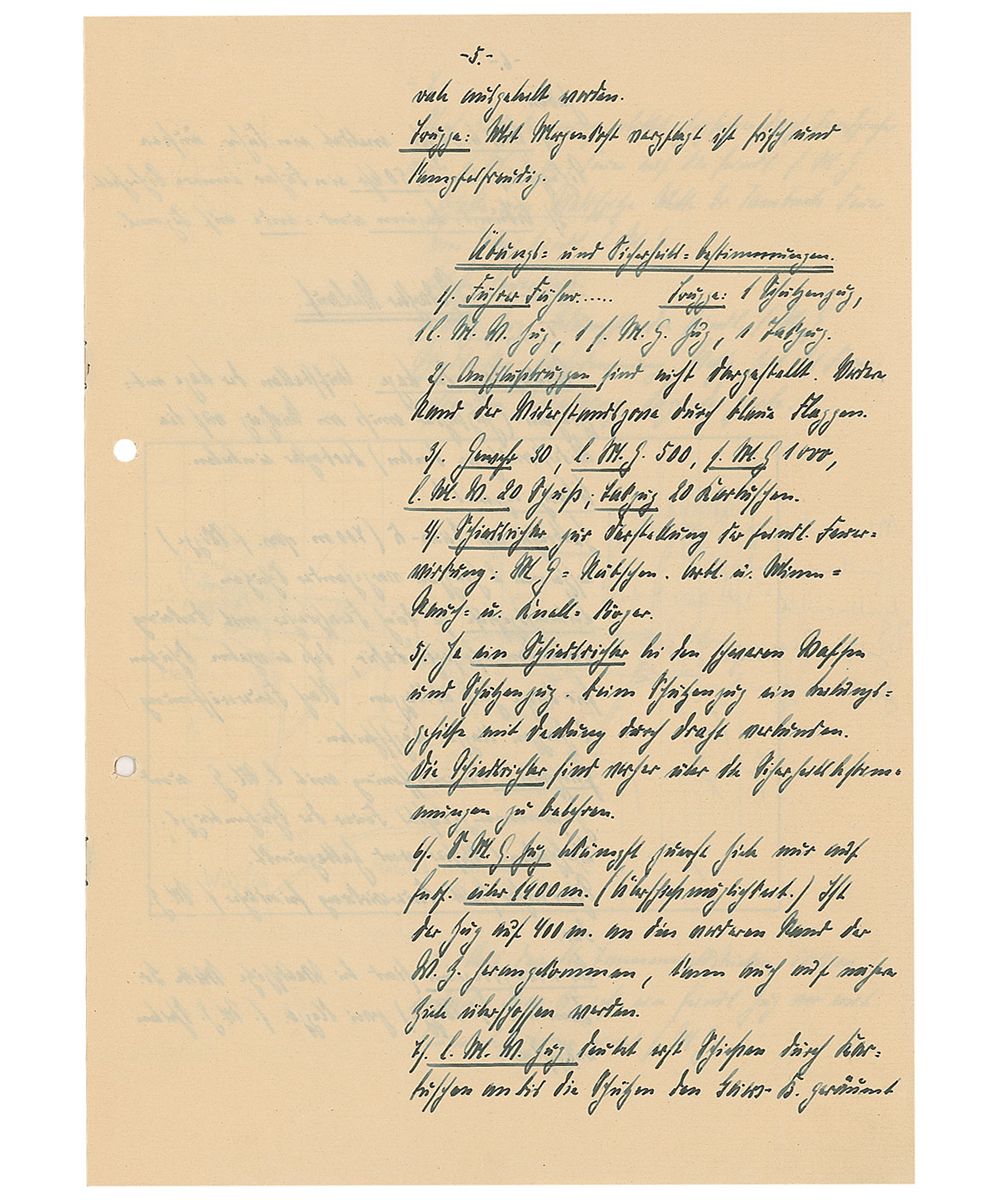 -5.-
ausgeteilt worden.
Truppe: Mit Morgenkost verpflegt ist frisch und
kampfesfreudig.
Übungs- und Sicherheits-bestimmungen.
1/. Führer Führer..... Truppe: 1 Schützenzug,
1 l. M. W. Zug, 1 s. M. G. Zug, 1 Takzug.
2/. Anschlußtruppen sind nicht dargestellt. Vorderer
Rand der Widerstandszone durch blaue Flaggen.
3/. Gewehr 30, l. M. G. 500, s. M. G 1000,
l. M. W. 20 Schuß; Takzug 20 Kartuschen.
4/. Schiedsrichter zur Darstellung der feindl. Feuer-
wirkung: M G = Rätschen. Artl. u. Minen=
Rauch- u. Knall-Körper.
5/. Je ein Schiedsrichter bei den schweren Waffen
und Schützenzug. Beim Schützenzug ein
gehilfe mit Deckung durch Draht verbunden.
Die Schiedsrichter sind vorher über die Sicherheitsbestim-
mungen zu belehren.
6/. S. M. G. Zug bekämpft zuerst Ziele nur auf
Entf. über 1400 m. (Überschießmöglichkeit.) Ist
der Zug auf 400 m. an den vorderen Rand der
W. Z. herangekommen, kann auch auf nähere
Ziele überschossen werden.
7/. l. M. W. Zug deutet erst Schießen durch Kar-
tuschen an bis die Schützen den geräumt